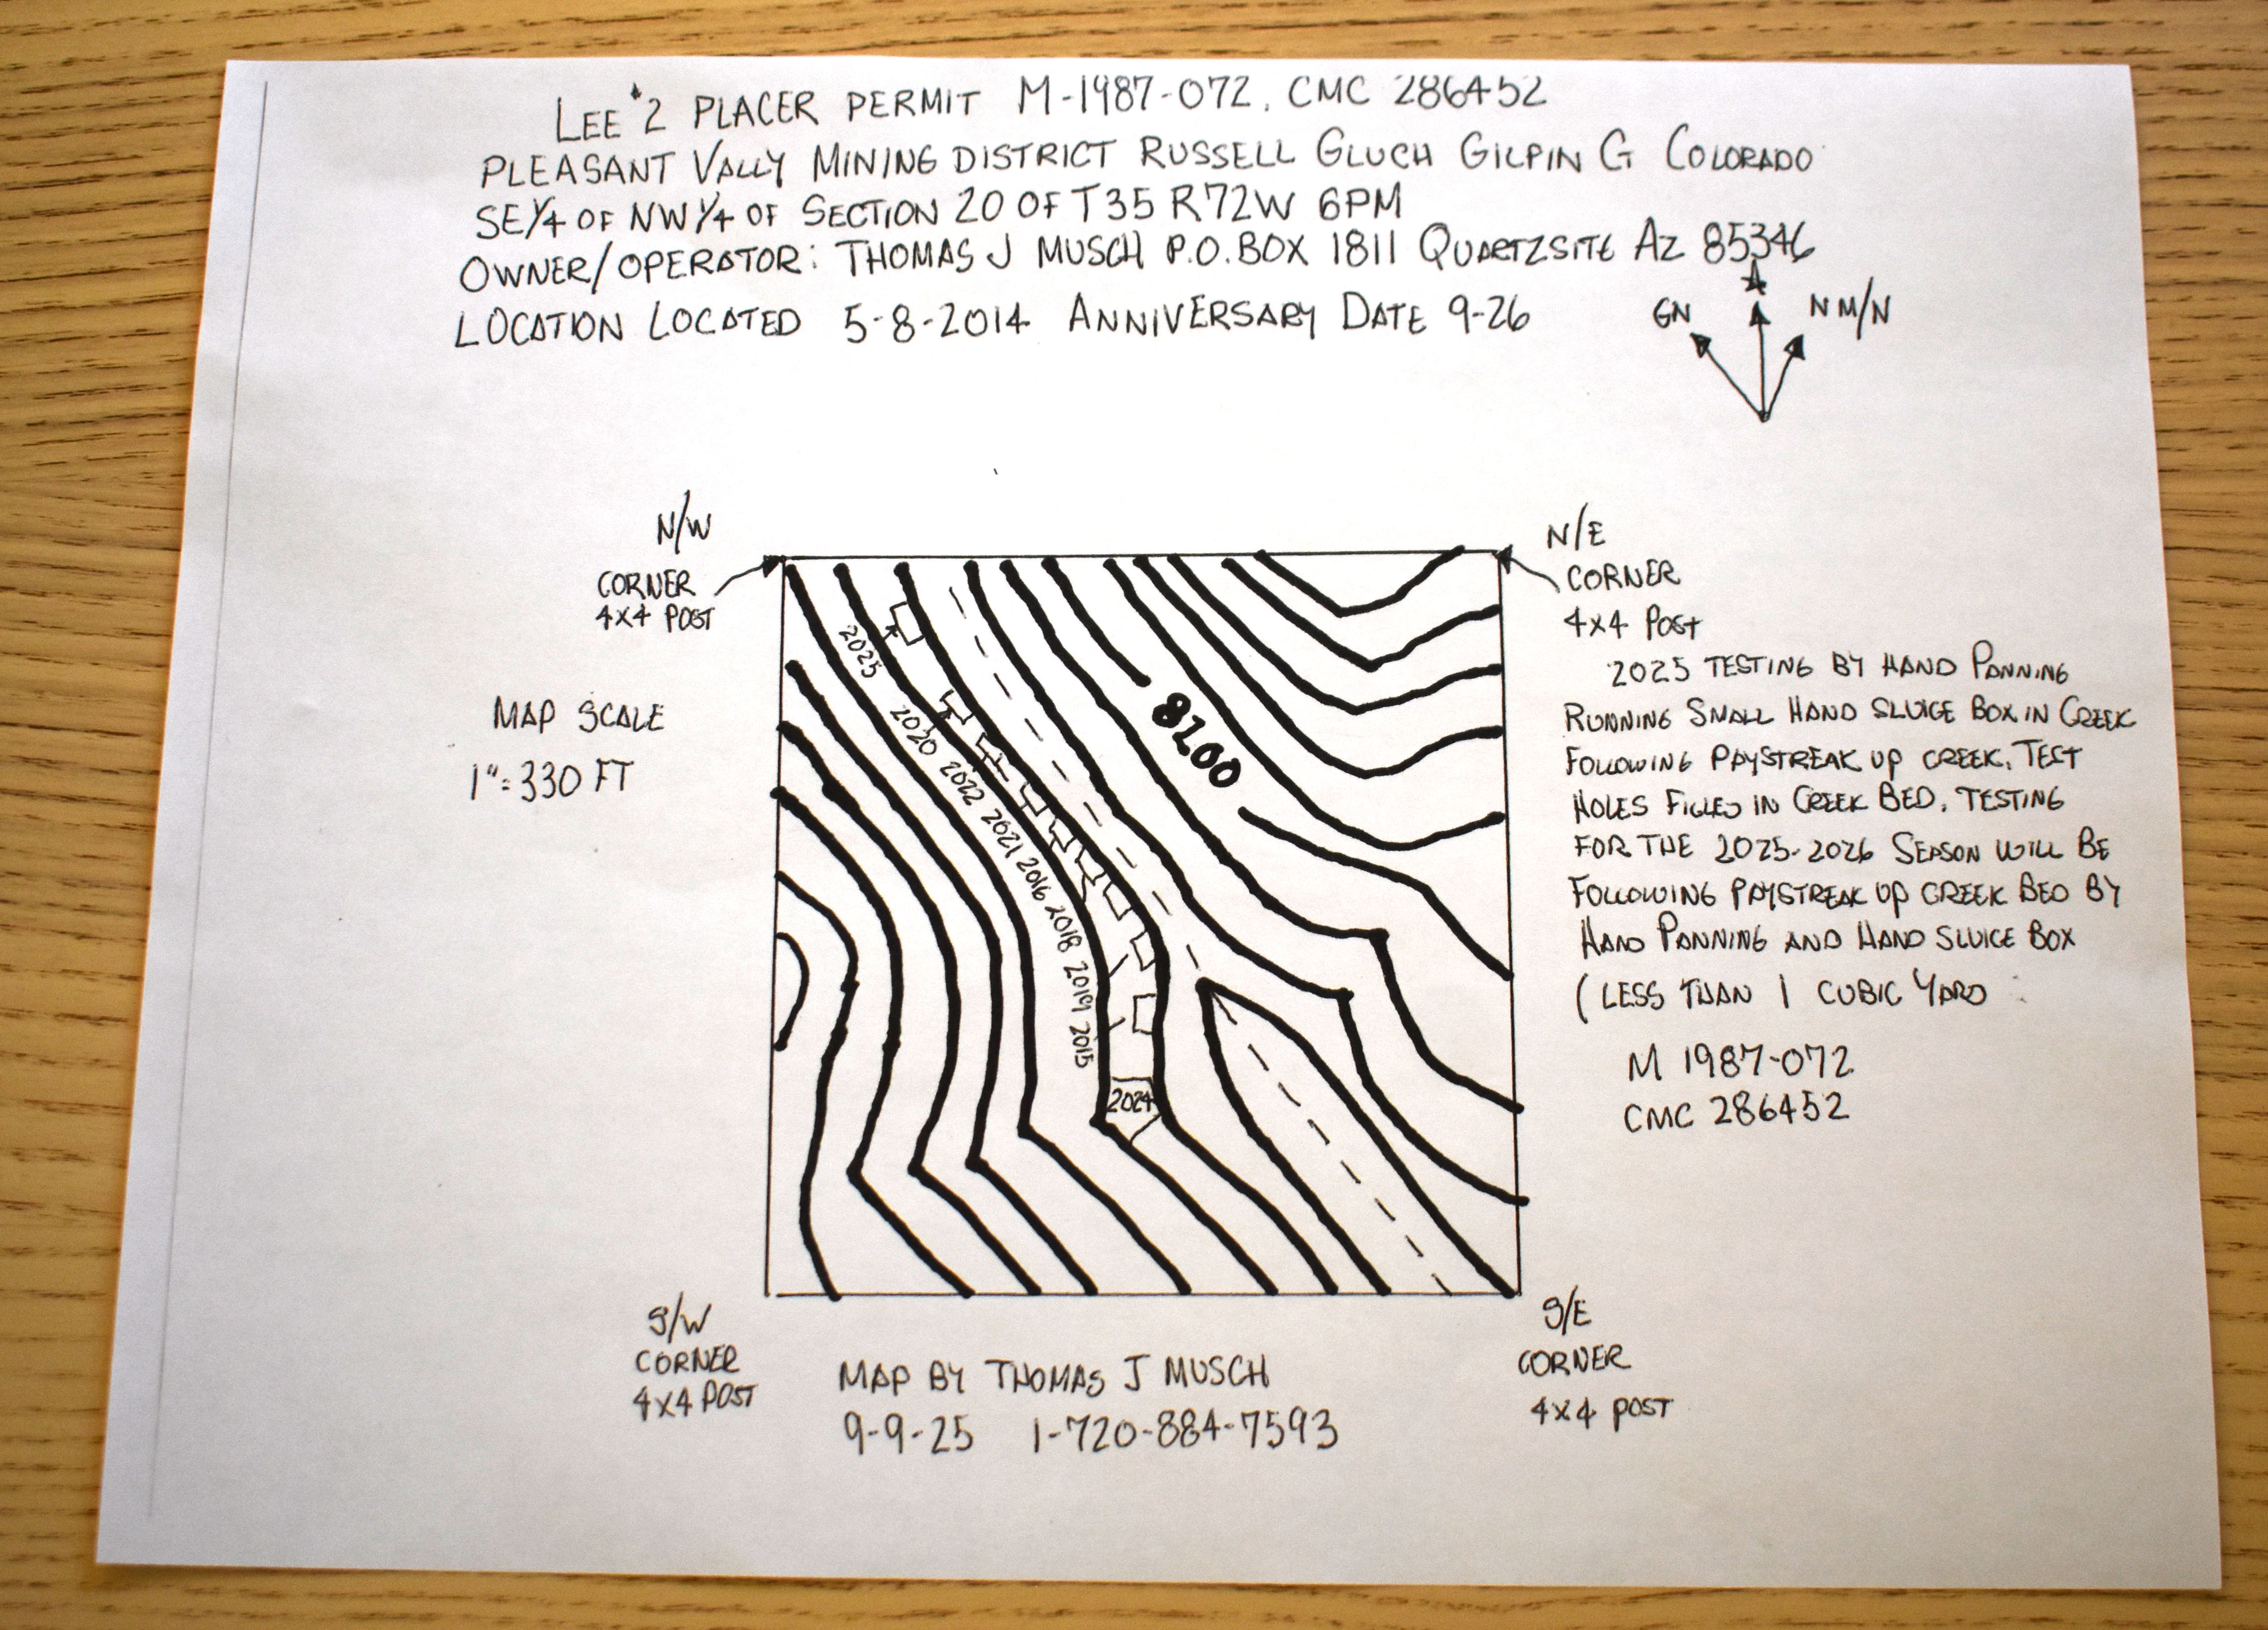 LEE #2 PLACER PERMIT M-1987-072, CMC 286452
PLEASANT VALLY MINING DISTRICT RUSSELL GLUCH GILPIN G COLORADO
SE 1/4 OF NW 1/4 OF SECTION 20 OF T35 R72W 6PM
OWNER/OPERATOR: THOMAS J MUSCH P.O. BOX 1811 QUARTZSITE AZ 85346
LOCATION LOCATED 5-8-2014 ANNIVERSARY DATE 9-26
GN
NM/N
N/W
CORNER
4x4 POST
N/E
CORNER
4x4 POST
MAP SCALE
1"=330 FT
2025
2020
2022
2021
2016
2018
2019
2015
2024
8200
2025 TESTING BY HAND PANNING
RUNNING SMALL HAND SLUICE BOX IN CREEK
FOLLOWING PAYSTREAK UP CREEK. TEST
HOLES IN CREEK BED. TESTING
FOR THE 2025-2026 SEASON WILL BE
FOLLOWING PAYSTREAK UP CREEK BED BY
HAND PANNING AND HAND SLUICE BOX
(LESS THAN 1 CUBIC YARD
M 1987-072
CMC 286452
S/W
CORNER
4x4 POST
S/E
CORNER
4x4 POST
MAP BY THOMAS J MUSCH
9-9-25 1-720-884-7593